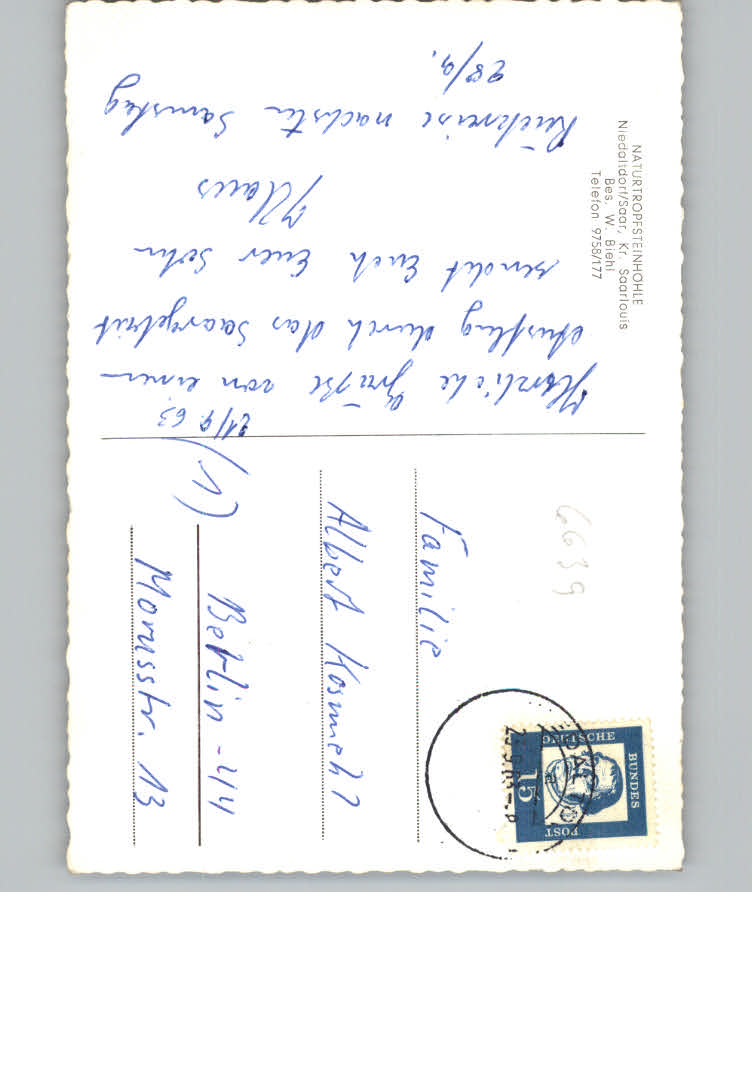 NATURTROPFSTEINHÖHLE
Niedaltdorf/Saar, Kr. Saarlouis
Bes. W. Biehl
Telefon 9758/177
21/9.63.
Herzliche Grüße von einem
Ausflug durch das Saargebiet
sendet Euch Euer Sohn
Klaus
Rückreise nächsten Samstag
28/9.
Familie
Albert
Berlin-44
(1)
Morusstr. 13
6639
DEUTSCHE
BUNDES
POST
15